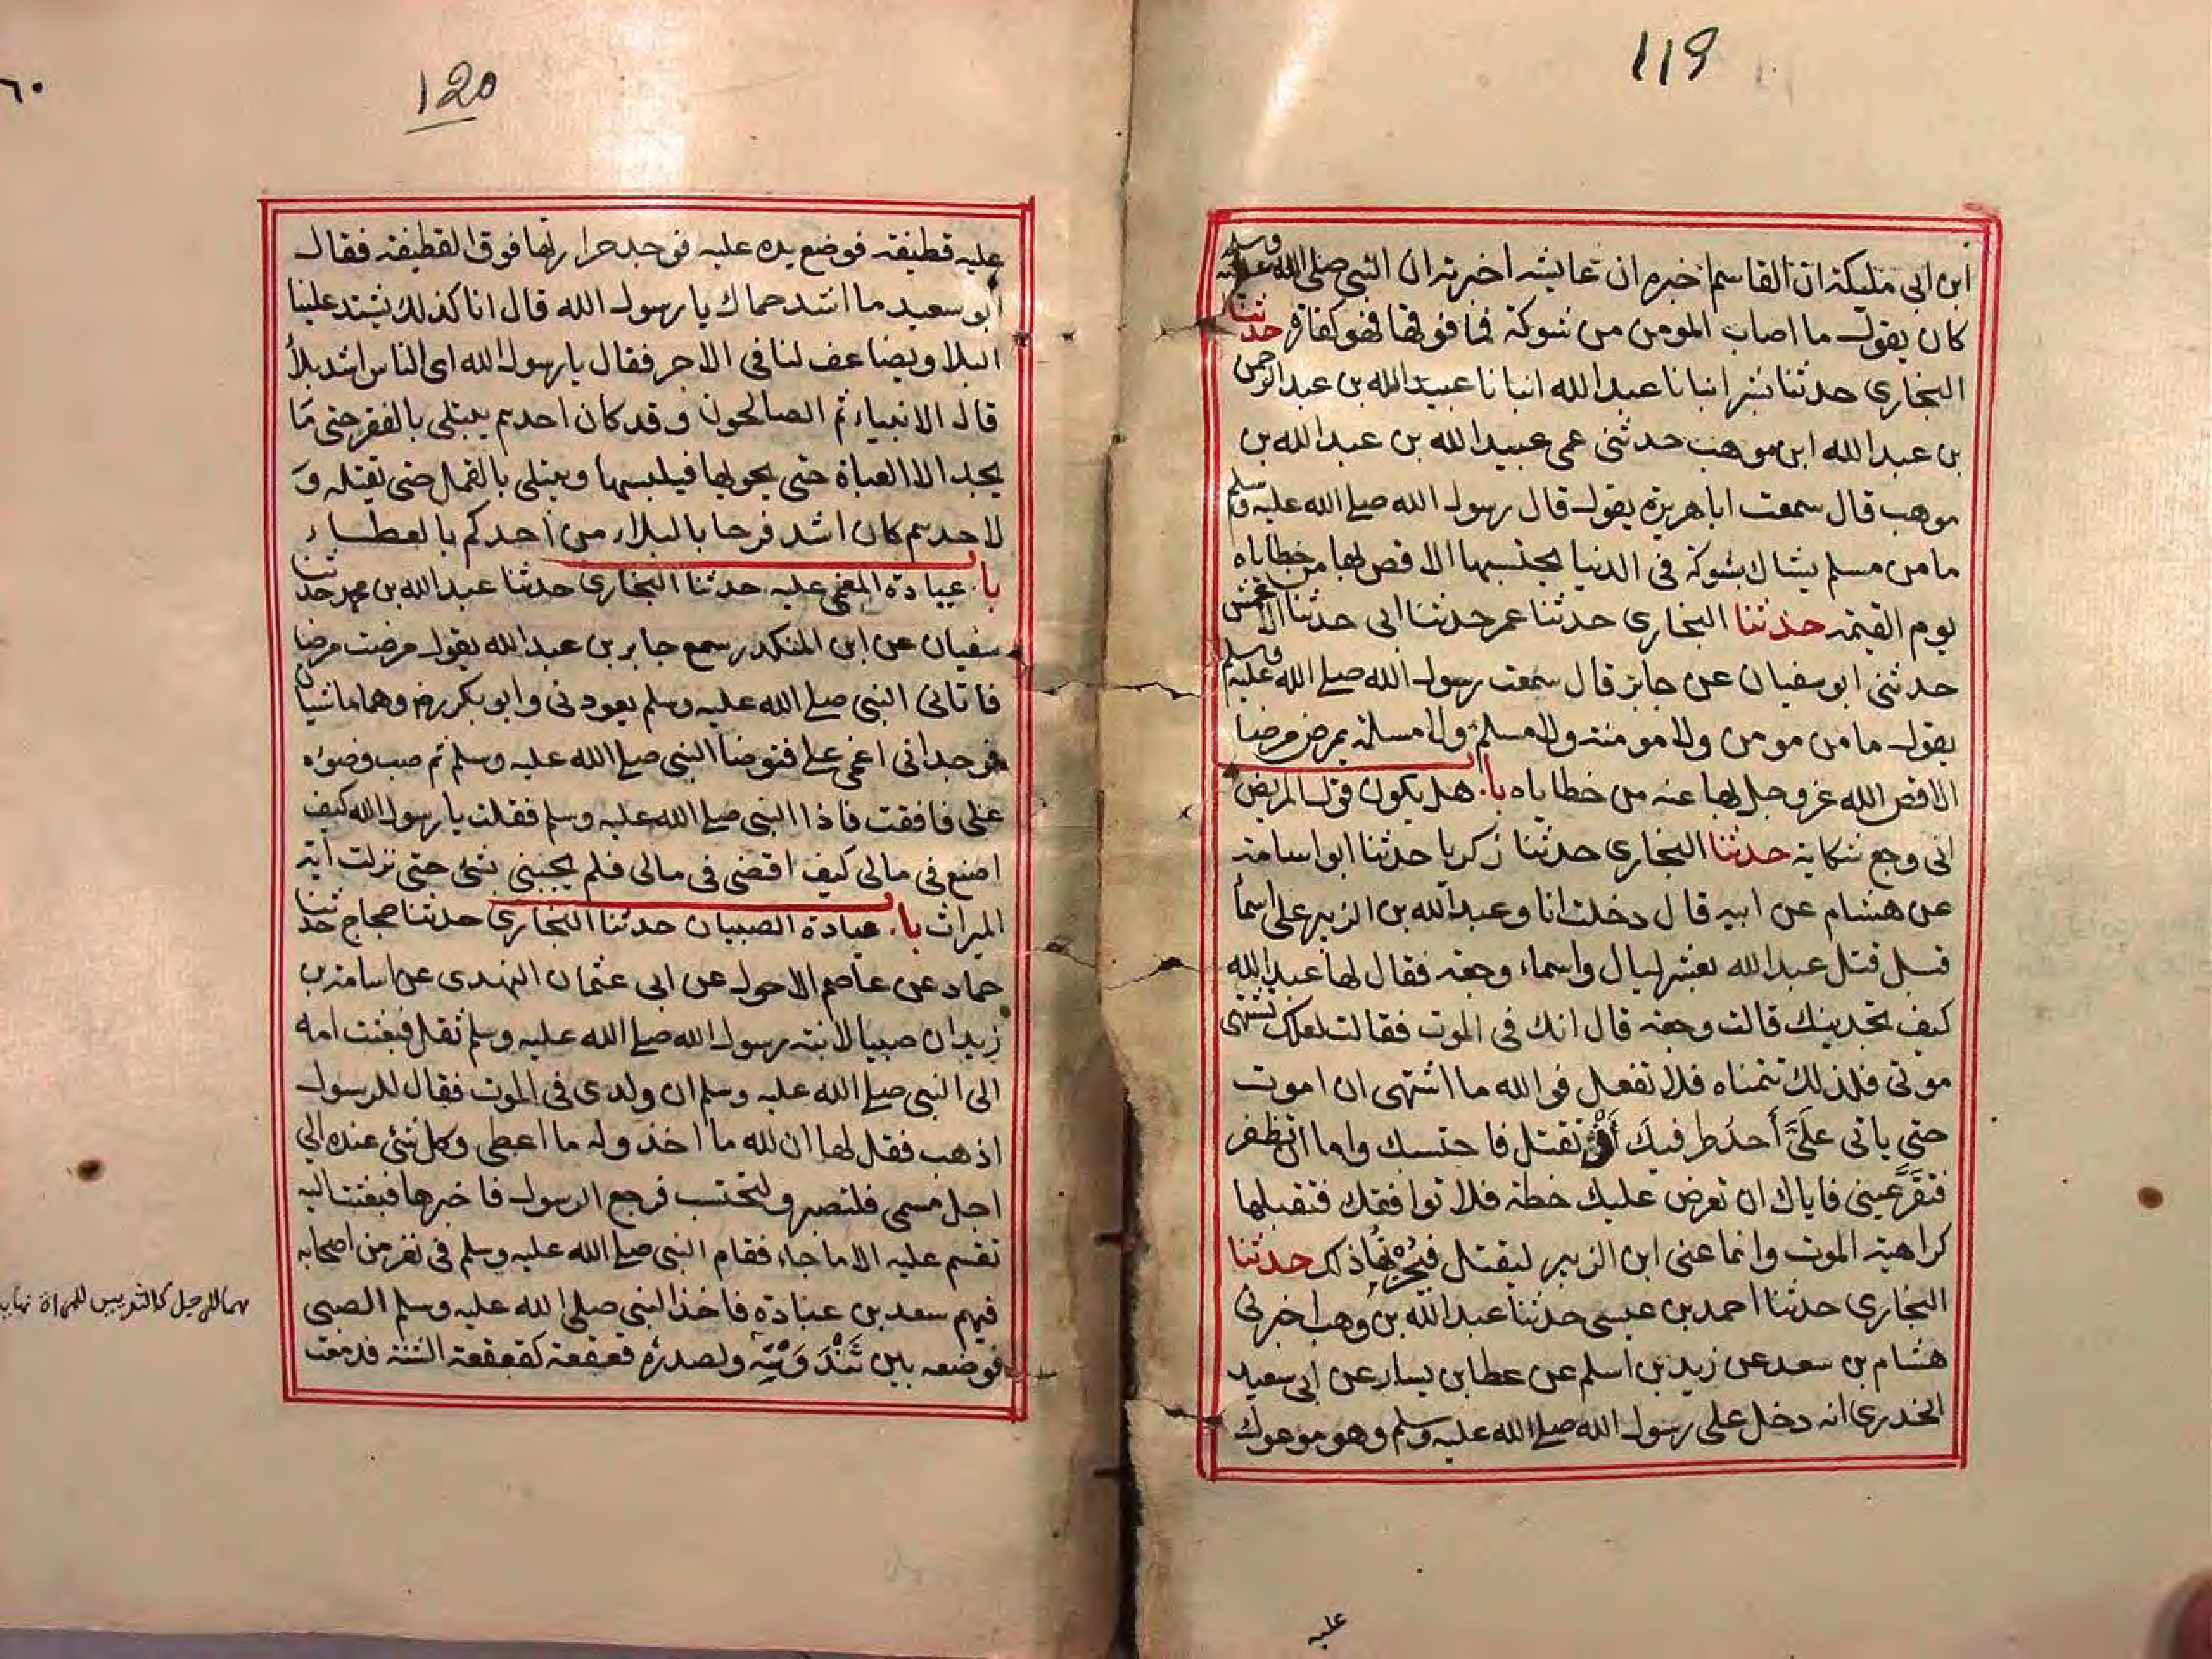 119
ابن ابى مليكة ان القاسم اخبره ان عايشه اخبرته ان النبى صلى الله عليه وسلم
كان يقول ما اصاب المومن من شوكة فما فوقها فهو كفارة حدثنا
البخارى حدثنا بشر انبانا عبد الله انبانا عبيد الله بن عبد الرحمن
بن عبد الله ابن موهب حدثنى عمى عبيد الله بن عبد الله بن
موهب قال سمعت ابا هريرة يقول قال رسول الله صلى الله عليه وسلم
ما من مسلم يشاك بشوكة فى الدنيا يحتسبها الا قص بها من خطاياه
يوم القيمة حدثنا البخارى حدثنا عمر حدثنا ابى حدثنا الاعمش
حدثنى ابو سفيان عن جابر قال سمعت رسول الله صلى الله عليه وسلم
يقول ما من مومن ولا مومنة ولا مسلم ولا مسلمة يمرض مرضا
الا قص الله عز وجل بها عنه من خطاياه باب هل يكون قول المريض
انى وجع شكاية حدثنا البخارى حدثنا زكريا حدثنا ابو اسامة
عن هشام عن ابيه قال دخلت انا وعبد الله بن الزبير على اسما
قبل قتل عبد الله بعشر ليال واسماء وجعه فقال لها عبد الله
كيف تجدينك قالت وجعه قال انك فى الموت فقالت لعلك تشتهى
موتى فلذلك تتمناه فلا تفعل فوالله ما اشتهى ان اموت
حتى ياتى علىَّ أحدُ طرفيك أو تقتل فاحتسبك واما ان تظفر
فتقرَّ عينى فاياك ان تعرض عليك خطة فلا توافقك فتقبلها
كراهية الموت وانما عنى ابن الزبير ليقتل فيُحْزِنُها ذلك حدثنا
البخارى حدثنا احمد بن عيسى حدثنا عبد الله بن وهب اخبرنى
هشام بن سعد عن زيد بن اسلم عن عطا بن يسار عن ابى سعيد
الخدرى انه دخل على رسول الله صلى الله عليه وسلم وهو موعوك
عليه
120
٦٠
عليه قطيفة فوضع يده عليه فوجد حرارتها فوق القطيفة فقال
ابو سعيد ما اشد حماك يا رسول الله قال انا كذلك يشتد علينا
البلا ويضاعف لنا فى الاجر فقال يا رسول الله اى الناس اشد بلأ
قال الانبياء ثم الصالحون وقد كان احدهم يبتلى بالفقر حتى مَا
يجد الا العباة حتى يجوبها فيلبسها ويبتلى بالقمل حتى تقتله وَ
لاحدهم كان اشد فرحا بالبلاء من احدكم بالعطاء
باب عيادة المغمى عليه حدثنا البخارى حدثنا عبد الله بن محمد حدثنا
سفيان عن ابن المنكدر سمع جابر بن عبد الله يقول مرضت مرضا
فاتانى النبى صلى الله عليه وسلم يعودنى وابو بكر رض وهما ماشيان
فوجدانى اغمى على فتوضا النبى صلى الله عليه وسلم ثم صب وضوئه
على فافقت فاذا النبى صلى الله عليه وسلم فقلت يا رسول الله كيف
اصنع فى مالى كيف اقضى فى مالى فلم يجبنى بشئ حتى نزلت اية
الميراث باب عيادة الصبيان حدثنا البخارى حدثنا حجاج حدثنا
حماد عن عاصم الاحول عن ابى عثمان النهدى عن اسامة بن
زيد ان صبيا لابنة رسول الله صلى الله عليه وسلم ثقل فبعثت امه
الى النبى صلى الله عليه وسلم ان ولدى فى الموت فقال للرسول
اذهب فقل لها ان لله ما اخذ وله ما اعطى وكل شئ عنده الى
اجل مسمى فلتصبر ولتحتسب فرجع الرسول فاخبرها فبعثت اليه
تقسم عليه الا ما جاء فقام النبى صلى الله عليه وسلم فى نفر من اصحابه
فيهم سعد بن عبادة فاخذ النبى صلى الله عليه وسلم الصبى
فوضعه بين ثَنْدَوَتَيْه ولصدره قعقعة كقعقعة الشنة فدمعت
هما للرجل كالثديين للمراة نهاية